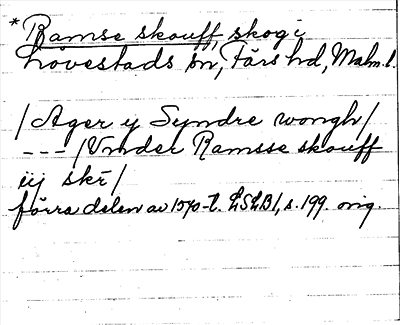 *Ramse skouff, skog i
Lövestads sn, Färs hd, Malm. l.
/Ager y Syndre wongh/
--- /Vnder Ramsse skouff
iij skr̄/
förra delen av 1570-t. LSLB1, s. 199. orig.